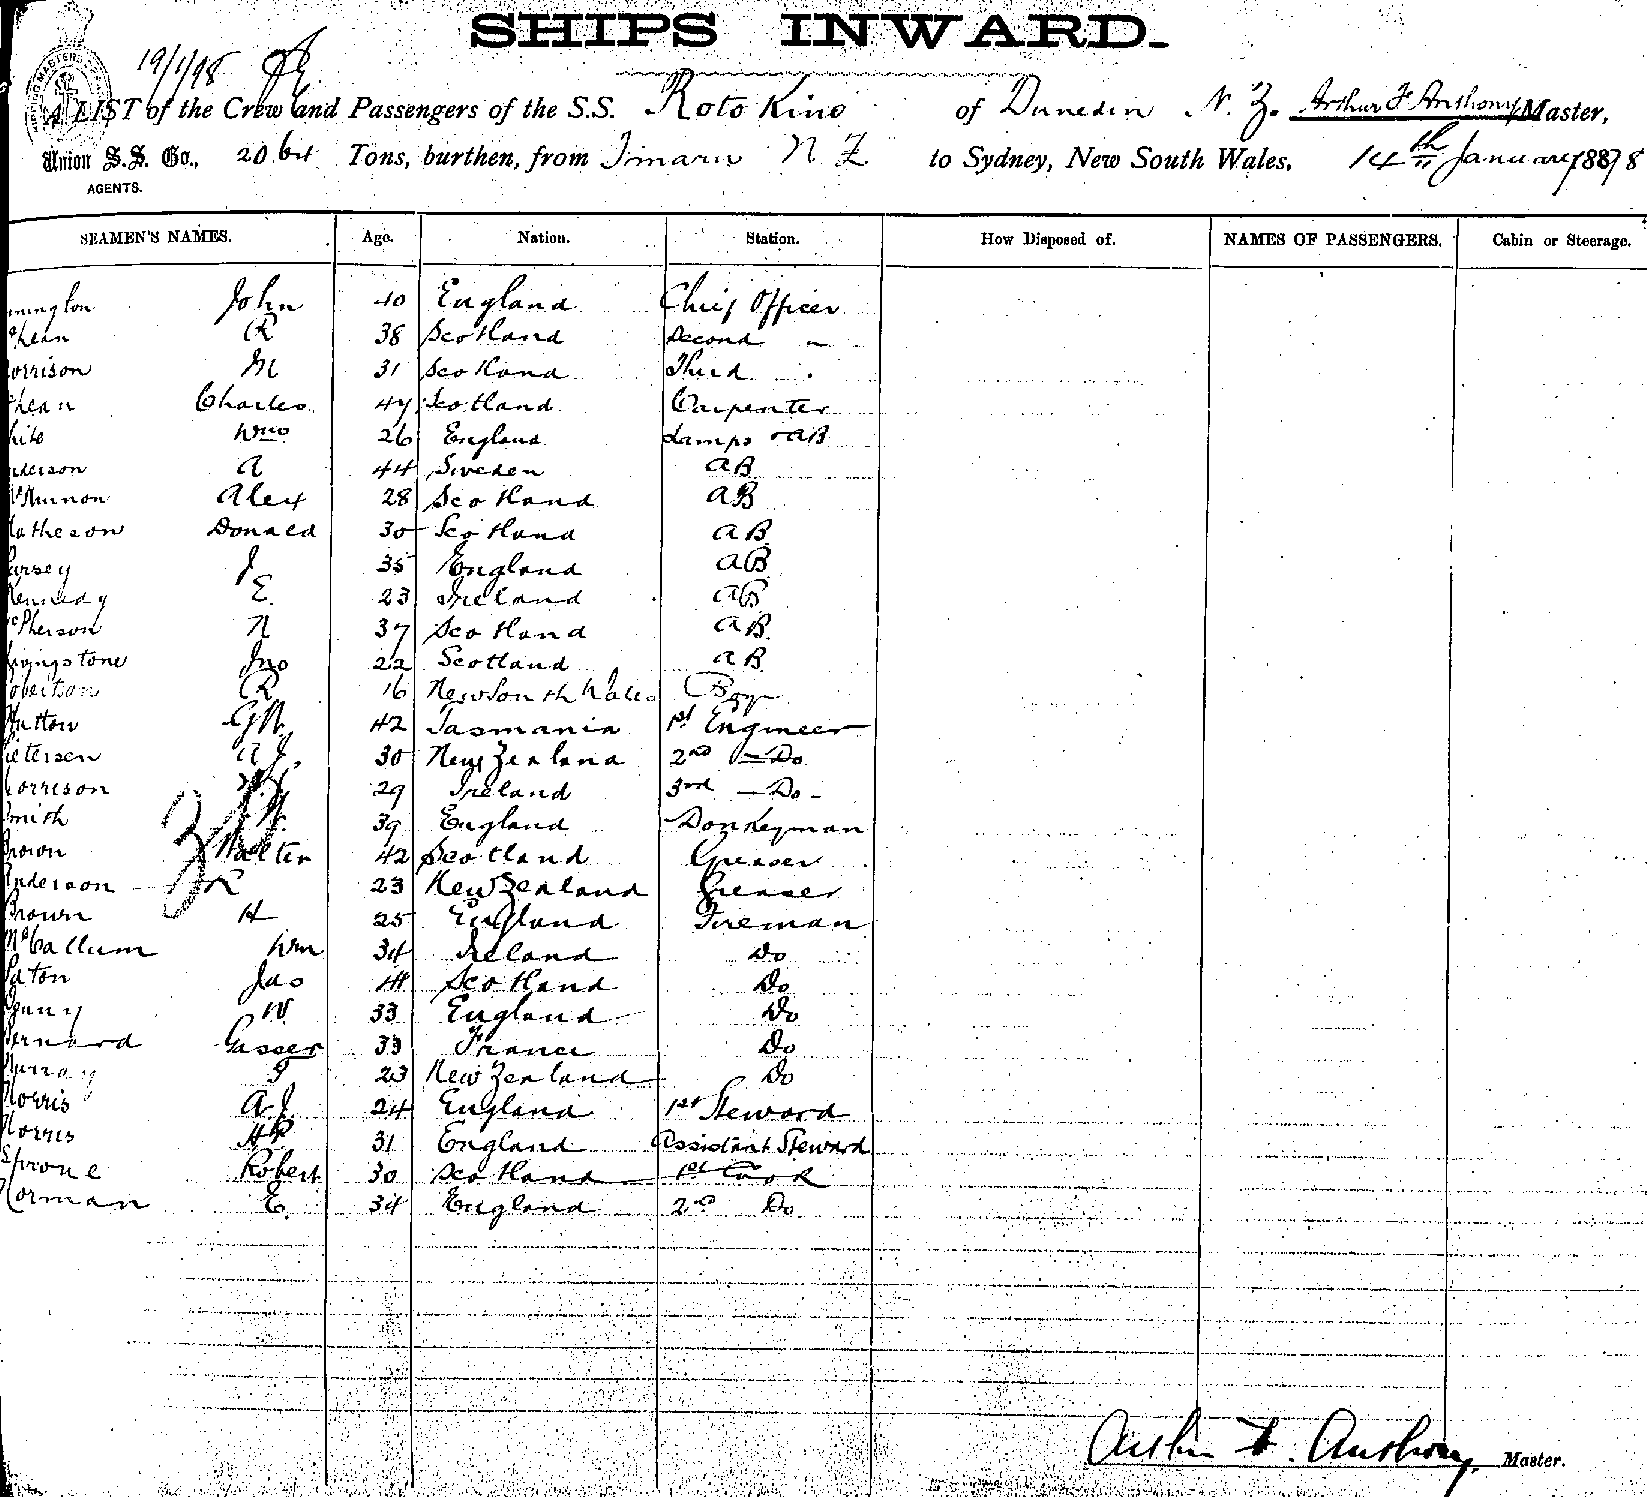 SHIPS INWARD.
19/1/98
A LIST of the Crew and Passengers of the S.S. Roto Kino of Dunedin N. Z. Arthur F Anthony Master,
Union S.S. Co., Tons, burthen, from Timaru N Z to Sydney, New South Wales, 14th January 1898
AGENTS.
SEAMEN'S NAMES. Age. Nation. Station. How Disposed of. NAMES OF PASSENGERS. Cabin or Steerage.
mington John 40 England Chief Officer
hean R 38 Scotland Second "
orrison M 31 Scotland Third "
hean Charles 47 Scotland Carpenter
hite Wm 26 England Lamps & AB
nderson A 44 Sweden AB
Kinnon Alex 28 Scotland AB
atheson Donald 30 Scotland AB
ursey J 35 England AB
Kennedy E. 23 Ireland AB
cPherson N 37 Scotland AB
ivingstone Jno 22 Scotland AB
obertson R 16 New South Wales Boy
Hutton 42 Tasmania 1st Engineer
etersen A J. 30 New Zealand 2nd - Do
orrison 29 Ireland 3rd - Do -
mith 39 England Donkeyman
Brown Walter 42 Scotland Greaser
Anderson R 23 New Zealand Greaser
Brown H 25 England Fireman
McCallum Wm 34 Ireland Do
Paton Jas Scotland Do
W. 33 England Do
Bernard Gasser 33 France Do
Murray 23 New Zealand Do
Norris A.J. 24 England 1st Steward
Norris 31 England Assistant Steward
Sproule Robert 30 Scotland 1st Cook
Norman E. 34 England 2nd Do
Arthur F. Anthony, Master.